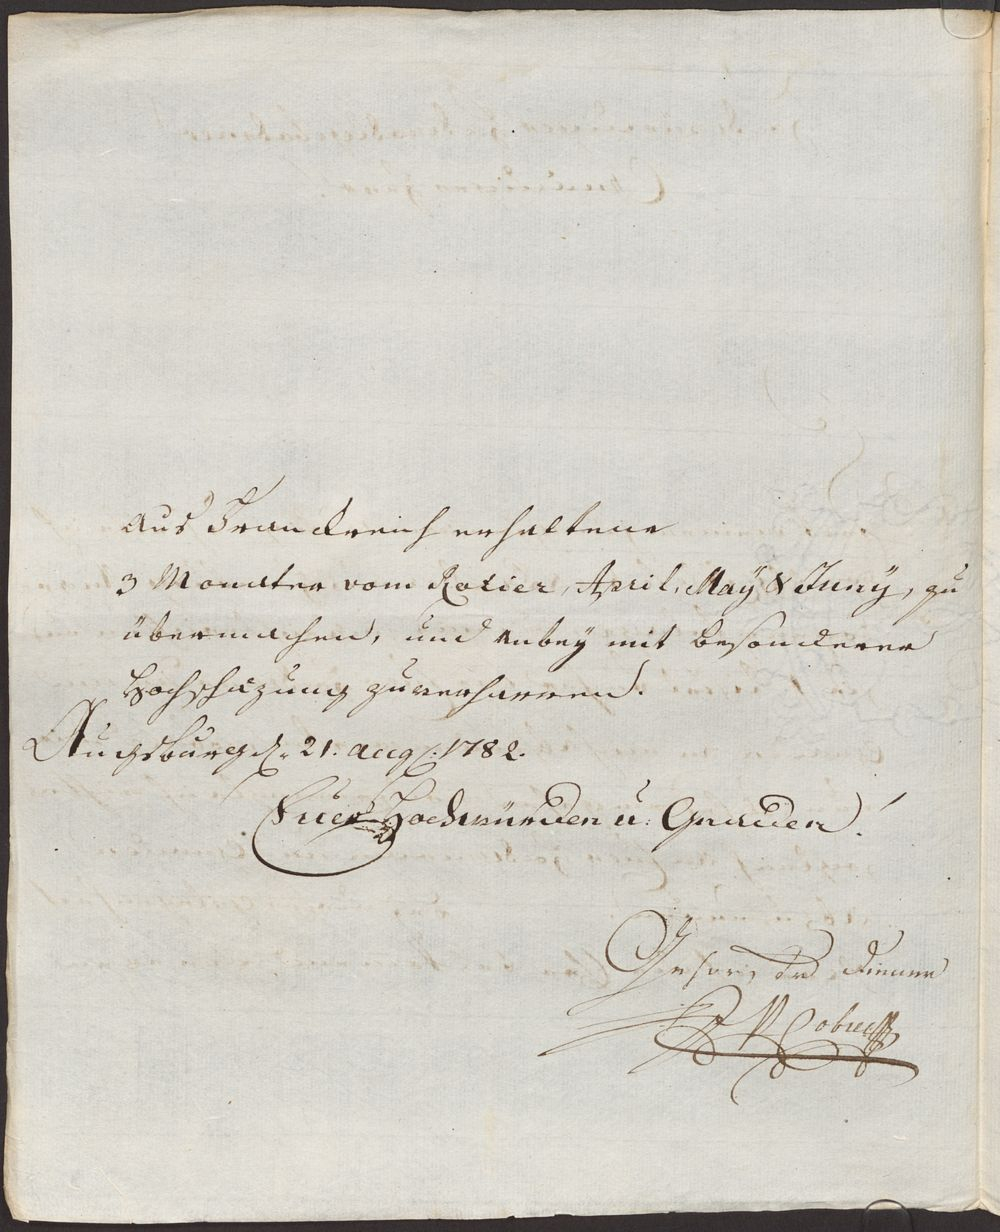 aus Franckreich erhaltene
3 Monather vom Rozier, April, May & Juny, zu
übermachen, und anbey mit besonderer
Hochschäzung zu verharren.
Augsburg d. 21. Aug. 1782.
Euer Hochwürden u: Gnaden!
Gehorsamster Diener